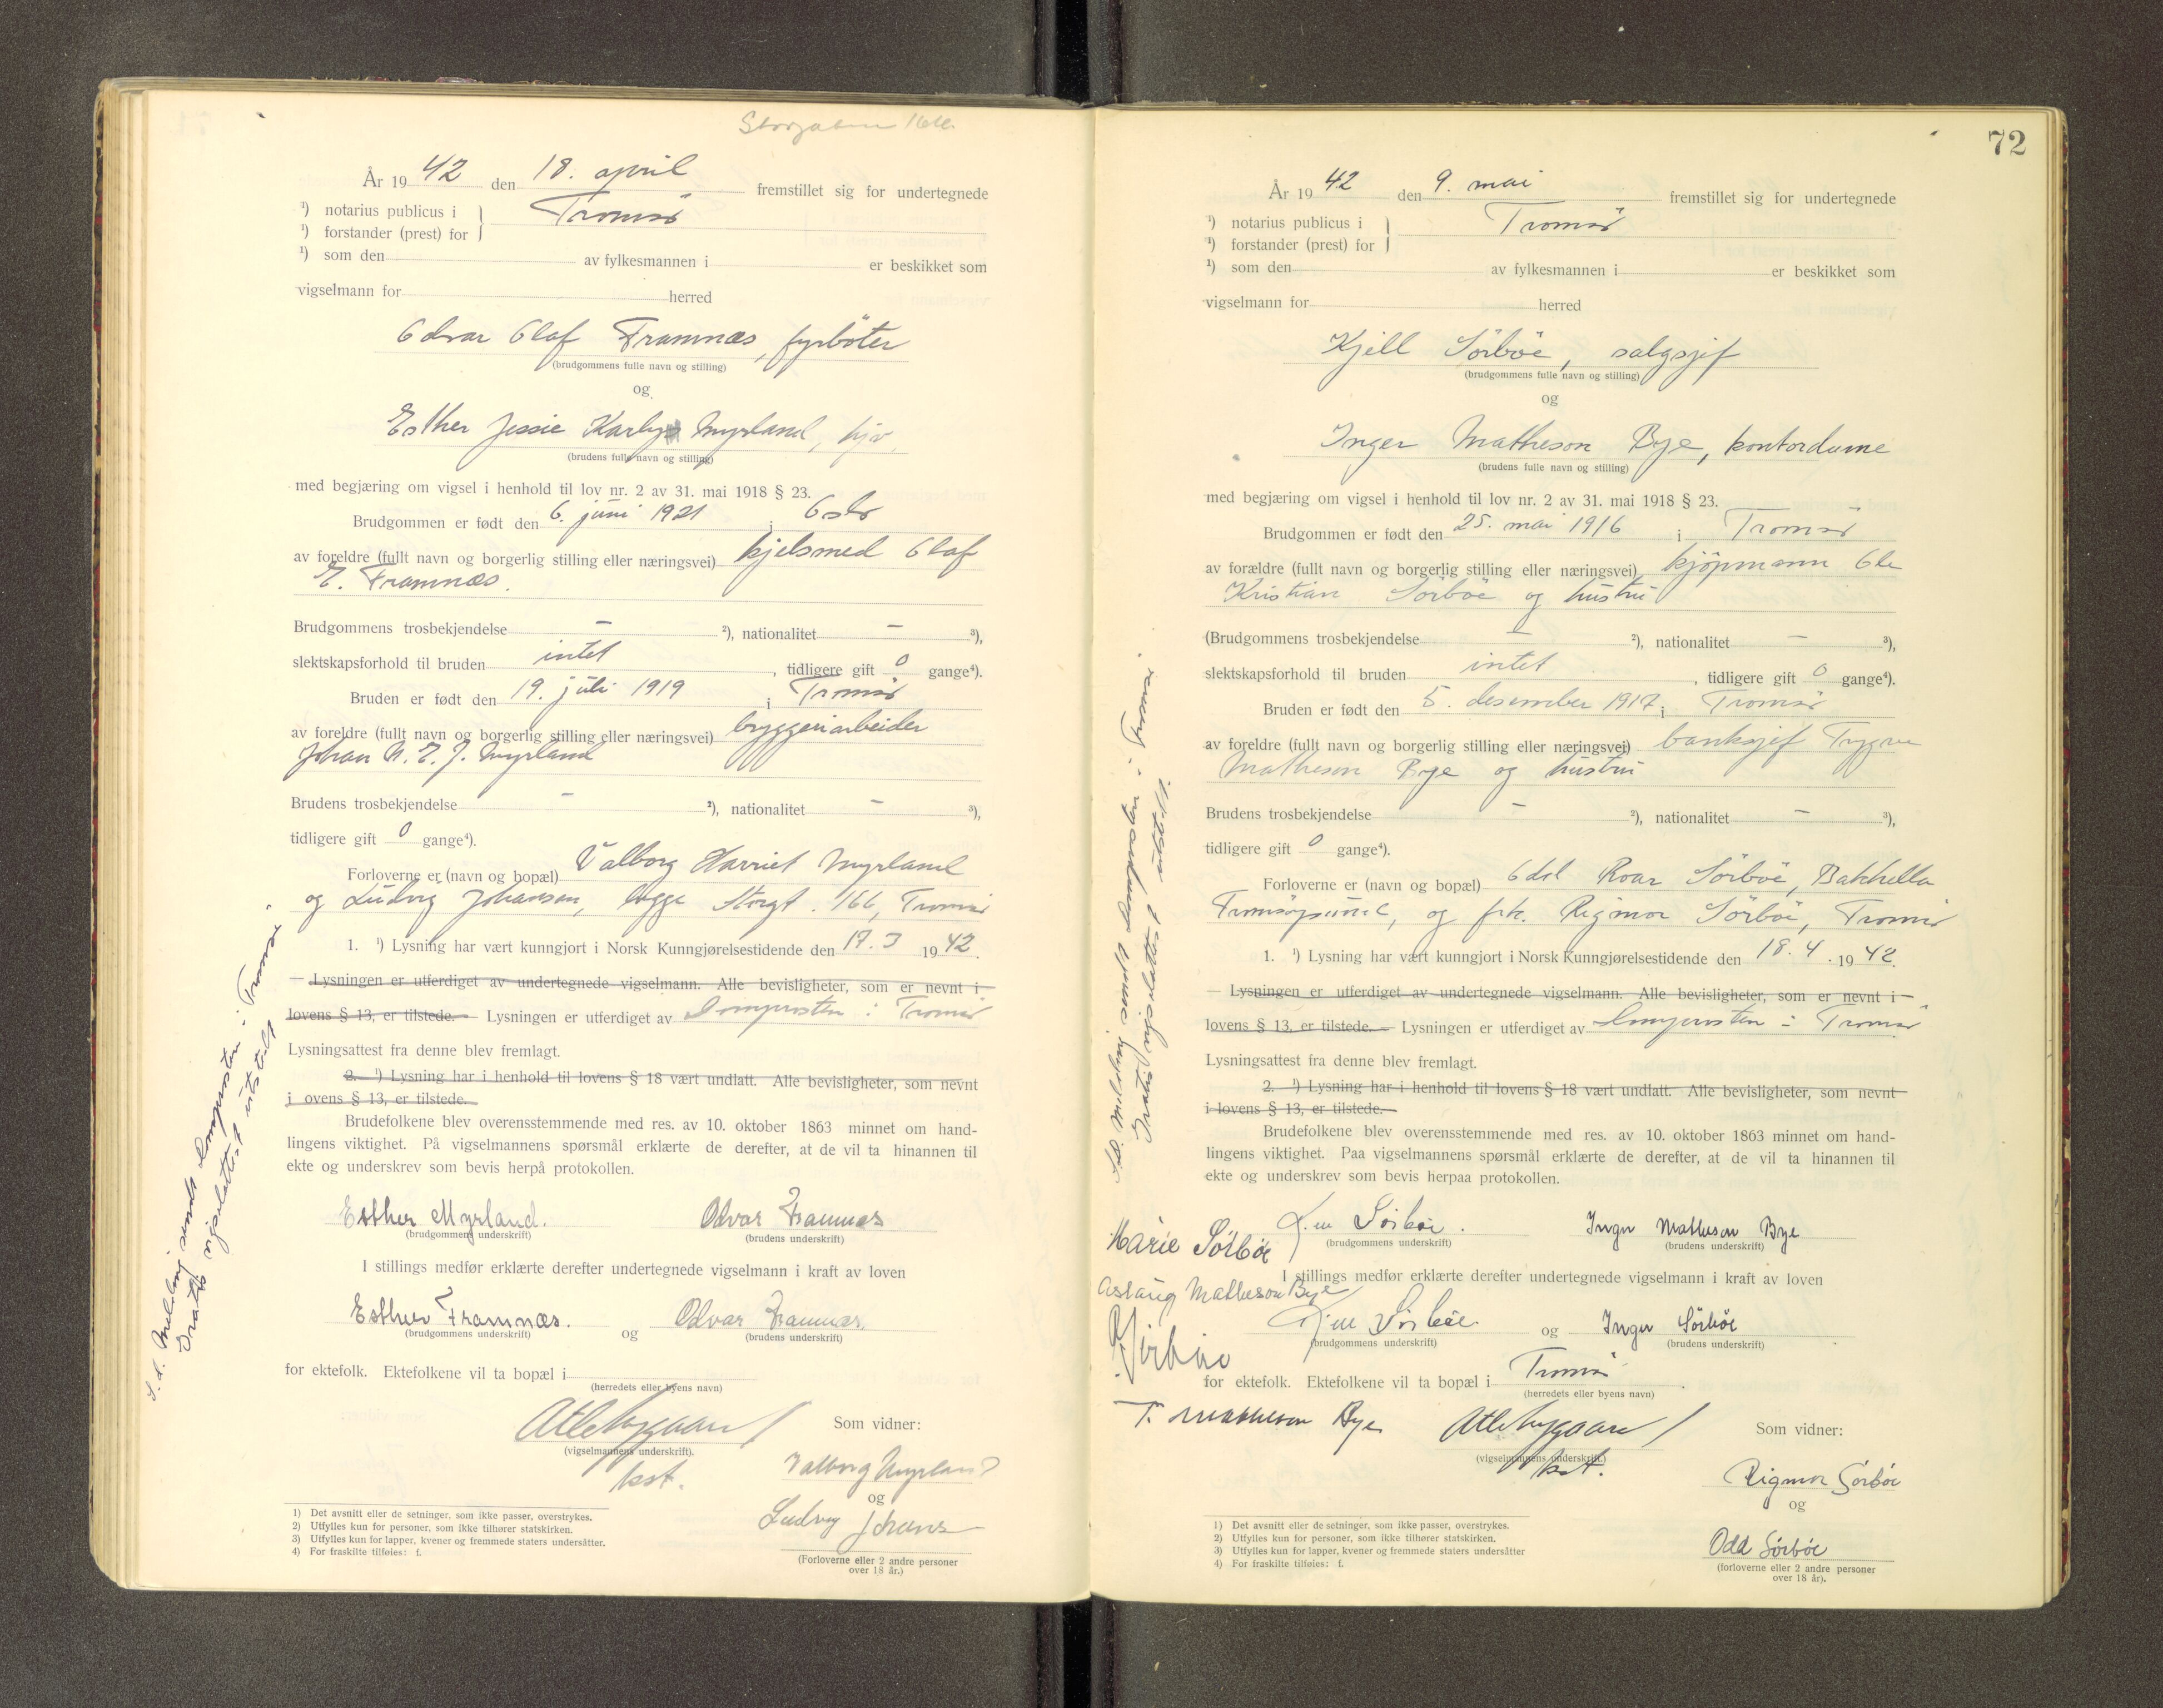 År 1942 den 18. april fremstillet sig for undertegnede
¹) notarius publicus i } Tromsø
¹) forstander (prest) for
¹) som den av fylkesmannen i er beskikket som
vigselmann for herred
Odvar Olaf Framnæs, fyrbøter
(brudgommens fulle navn og stilling)
og
Esther Jessie Myrland, hjv.
(brudens fulle navn og stilling)
med begjæring om vigsel i henhold til lov nr. 2 av 31. mai 1918 § 23.
Brudgommen er født den 6. juni 1921 i Oslo
av foreldre (fullt navn og borgerlig stilling eller næringsvei) kjelsmed Olaf
E. Framnæs.
Brudgommens trosbekjendelse — ²), nationalitet — ³),
slektskapsforhold til bruden intet, tidligere gift 0 gange⁴).
Bruden er født den 19. juli 1919 i Tromsø
av foreldre (fullt navn og borgerlig stilling eller næringsvei) bryggeriarbeider
Johan N. E. J. Myrland
Brudens trosbekjendelse — ²), nationalitet — ³),
tidligere gift 0 gange⁴).
Forloverne er (navn og bopæl) Valborg Harriet Myrland
og Ludvig Johansen, begge Storgt. 166, Tromsø
1. ¹) Lysning har vært kunngjort i Norsk Kunngjørelsestidende den 17.3 1942.
— Lysningen er utferdiget av undertegnede vigselmann. Alle bevisligheter, som er nevnt i
lovens § 13, er tilstede. — Lysningen er utferdiget av domprosten i Tromsø
Lysningsattest fra denne blev fremlagt.
2. ¹) Lysning har i henhold til lovens § 18 vært undlatt. Alle bevisligheter, som nevnt
i ovens § 13, er tilstede.
Brudefolkene blev overensstemmende med res. av 10. oktober 1863 minnet om hand-
lingens viktighet. På vigselmannens spørsmål erklærte de derefter, at de vil ta hinannen til
ekte og underskrev som bevis herpå protokollen.
Esther Myrland. Odvar Framnæs
(brudgommens underskrift) (brudens underskrift)
I stillings medfør erklærte derefter undertegnede vigselmann i kraft av loven
Esther Framnæs. og Odvar Framnæs.
(brudgommens underskrift) (brudens underskrift)
for ektefolk. Ektefolkene vil ta bopæl i
(herredets eller byens navn)
Som vidner:
(vigselmannens underskrift).
kst.
Valborg Myrland
og
Ludvig Johans
(Forloverne eller 2 andre personer
over 18 år.)
1) Det avsnitt eller de setninger, som ikke passer, overstrykes.
2) Utfylles kun for personer, som ikke tilhører statskirken.
3) Utfylles kun for lapper, kvener og fremmede staters undersåtter.
4) For fraskilte tilføies: f.
S.d. Melding sendt domprosten i Tromsø.
Gratis vigselattest utstedt
72
År 1942 den 9. mai fremstillet sig for undertegnede
¹) notarius publicus i } Tromsø
¹) forstander (prest) for
¹) som den av fylkesmannen i er beskikket som
vigselmann for herred
Kjell Sörböe, salgsjef
(brudgommens fulle navn og stilling)
og
Inger Matheson Bye, kontordame
(brudens fulle navn og stilling)
med begjæring om vigsel i henhold til lov nr. 2 av 31. mai 1918 § 23.
Brudgommen er født den 25. mai 1916 i Tromsø
av forældre (fullt navn og borgerlig stilling eller næringsvei) kjöpmann Ole
Kristian Sörböe og hustru
(Brudgommens trosbekjendelse — ²), nationalitet — ³),
slektskapsforhold til bruden intet, tidligere gift 0 gange⁴).
Bruden er født den 5. desember 1917 i Tromsø
av foreldre (fullt navn og borgerlig stilling eller næringsvei) banksjef Trygve
Matheson Bye og hustru
Brudens trosbekjendelse — ²), nationalitet — ³),
tidligere gift 0 gange⁴).
Forloverne er (navn og bopæl) Odd Roar Sörböe, Bakkella
Tromsøysund, og frk. Rigmor Sörböe, Tromsø
1. ¹) Lysning har vært kunngjort i Norsk Kunngjørelsestidende den 18.4.1942.
— Lysningen er utferdiget av undertegnede vigselmann. Alle bevisligheter, som er nevnt i
lovens § 13, er tilstede. — Lysningen er utferdiget av domprosten i Tromsø
Lysningsattest fra denne blev fremlagt.
2. ¹) Lysning har i henhold til lovens § 18 vært undlatt. Alle bevisligheter, som nevnt
i lovens § 13, er tilstede.
Brudefolkene blev overensstemmende med res. av 10. oktober 1863 minnet om hand-
lingens viktighet. Paa vigselmannens spørsmål erklærte de derefter, at de vil ta hinannen til
ekte og underskrev som bevis herpaa protokollen.
Kjell Sörböe. Inger Matheson Bye
(brudgommens underskrift) (brudens underskrift)
Marie Sörböe
I stillings medfør erklærte derefter undertegnede vigselmann i kraft av loven
Aslaug Matheson Bye
Kjell Sörböe. og Inger Sörböe
(brudgommens underskrift) (brudens underskrift)
Sörböe
for ektefolk. Ektefolkene vil ta bopæl i Tromsø
(herredets eller byens navn)
T. Matheson Bye
Som vidner:
(vigselmannens underskrift.)
kst.
Rigmor Sörböe
og
Odd Sörböe
(forloverne eller 2 andre personer
over 18 år).
1) Det avsnitt eller de setninger, som ikke passer, overstrykes.
2) Utfylles kun for personer, som ikke tilhører statskirken.
3) Utfylles kun for lapper, kvener og fremmede staters undersåtter
4) For fraskilte tilføies: f.